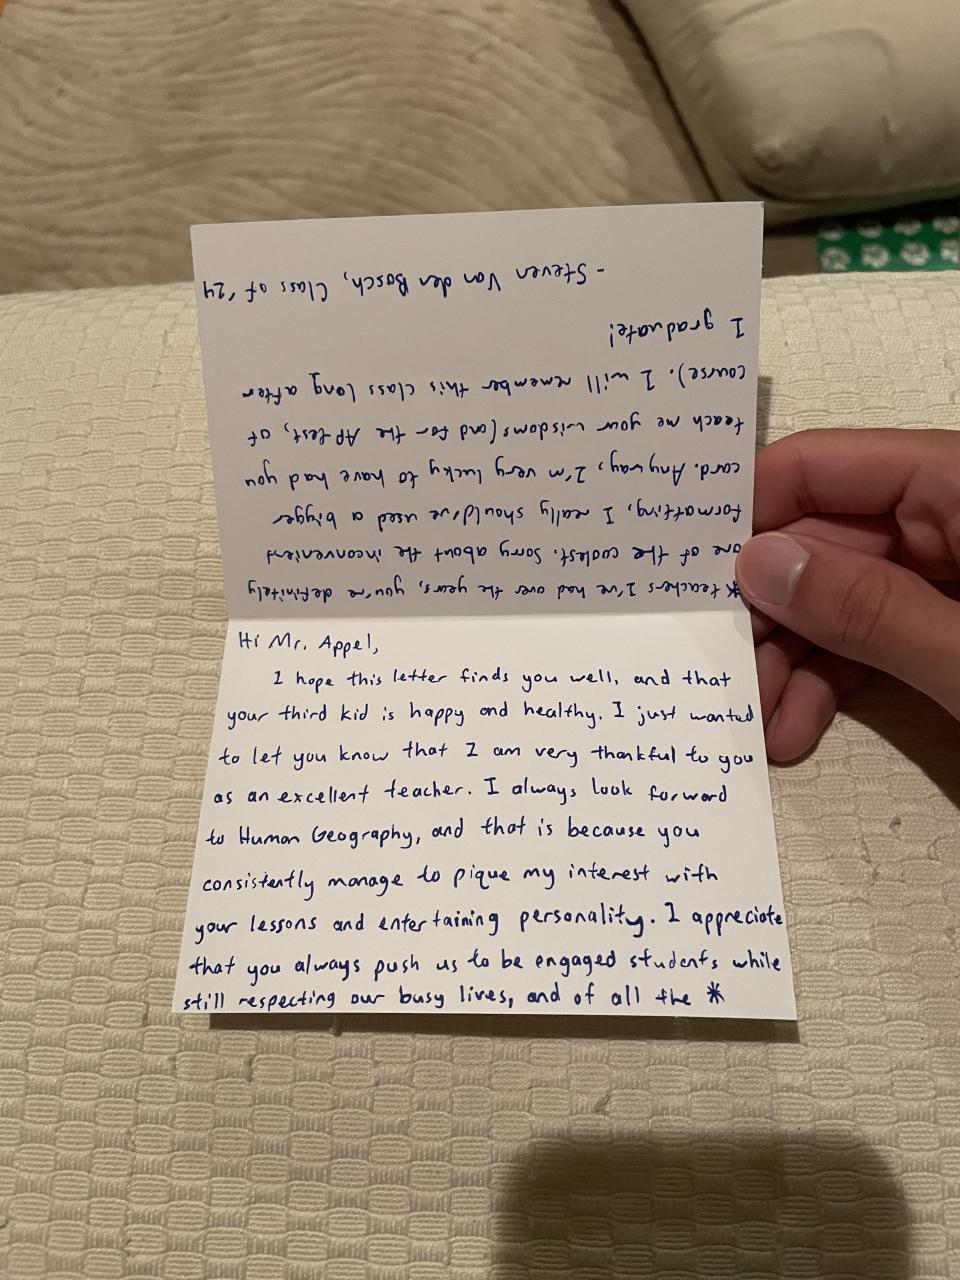 Hi Mr. Appel,
I hope this letter finds you well, and that
your third kid is happy and healthy. I just wanted
to let you know that I am very thankful to you
as an excellent teacher. I always look forward
to Human Geography, and that is because you
consistently manage to pique my interest with
your lessons and entertaining personality. I appreciate
that you always push us to be engaged students while
still respecting our busy lives, and of all the *
* teachers I've had over the years, you're definitely
one of the coolest. Sorry about the inconvenient
formatting, I really should've used a bigger
card. Anyway, I'm very lucky to have had you
teach me your wisdoms (and for the AP test, of
course). I will remember this class long after
I graduate!
- Steven Van den Bosch, Class of '24